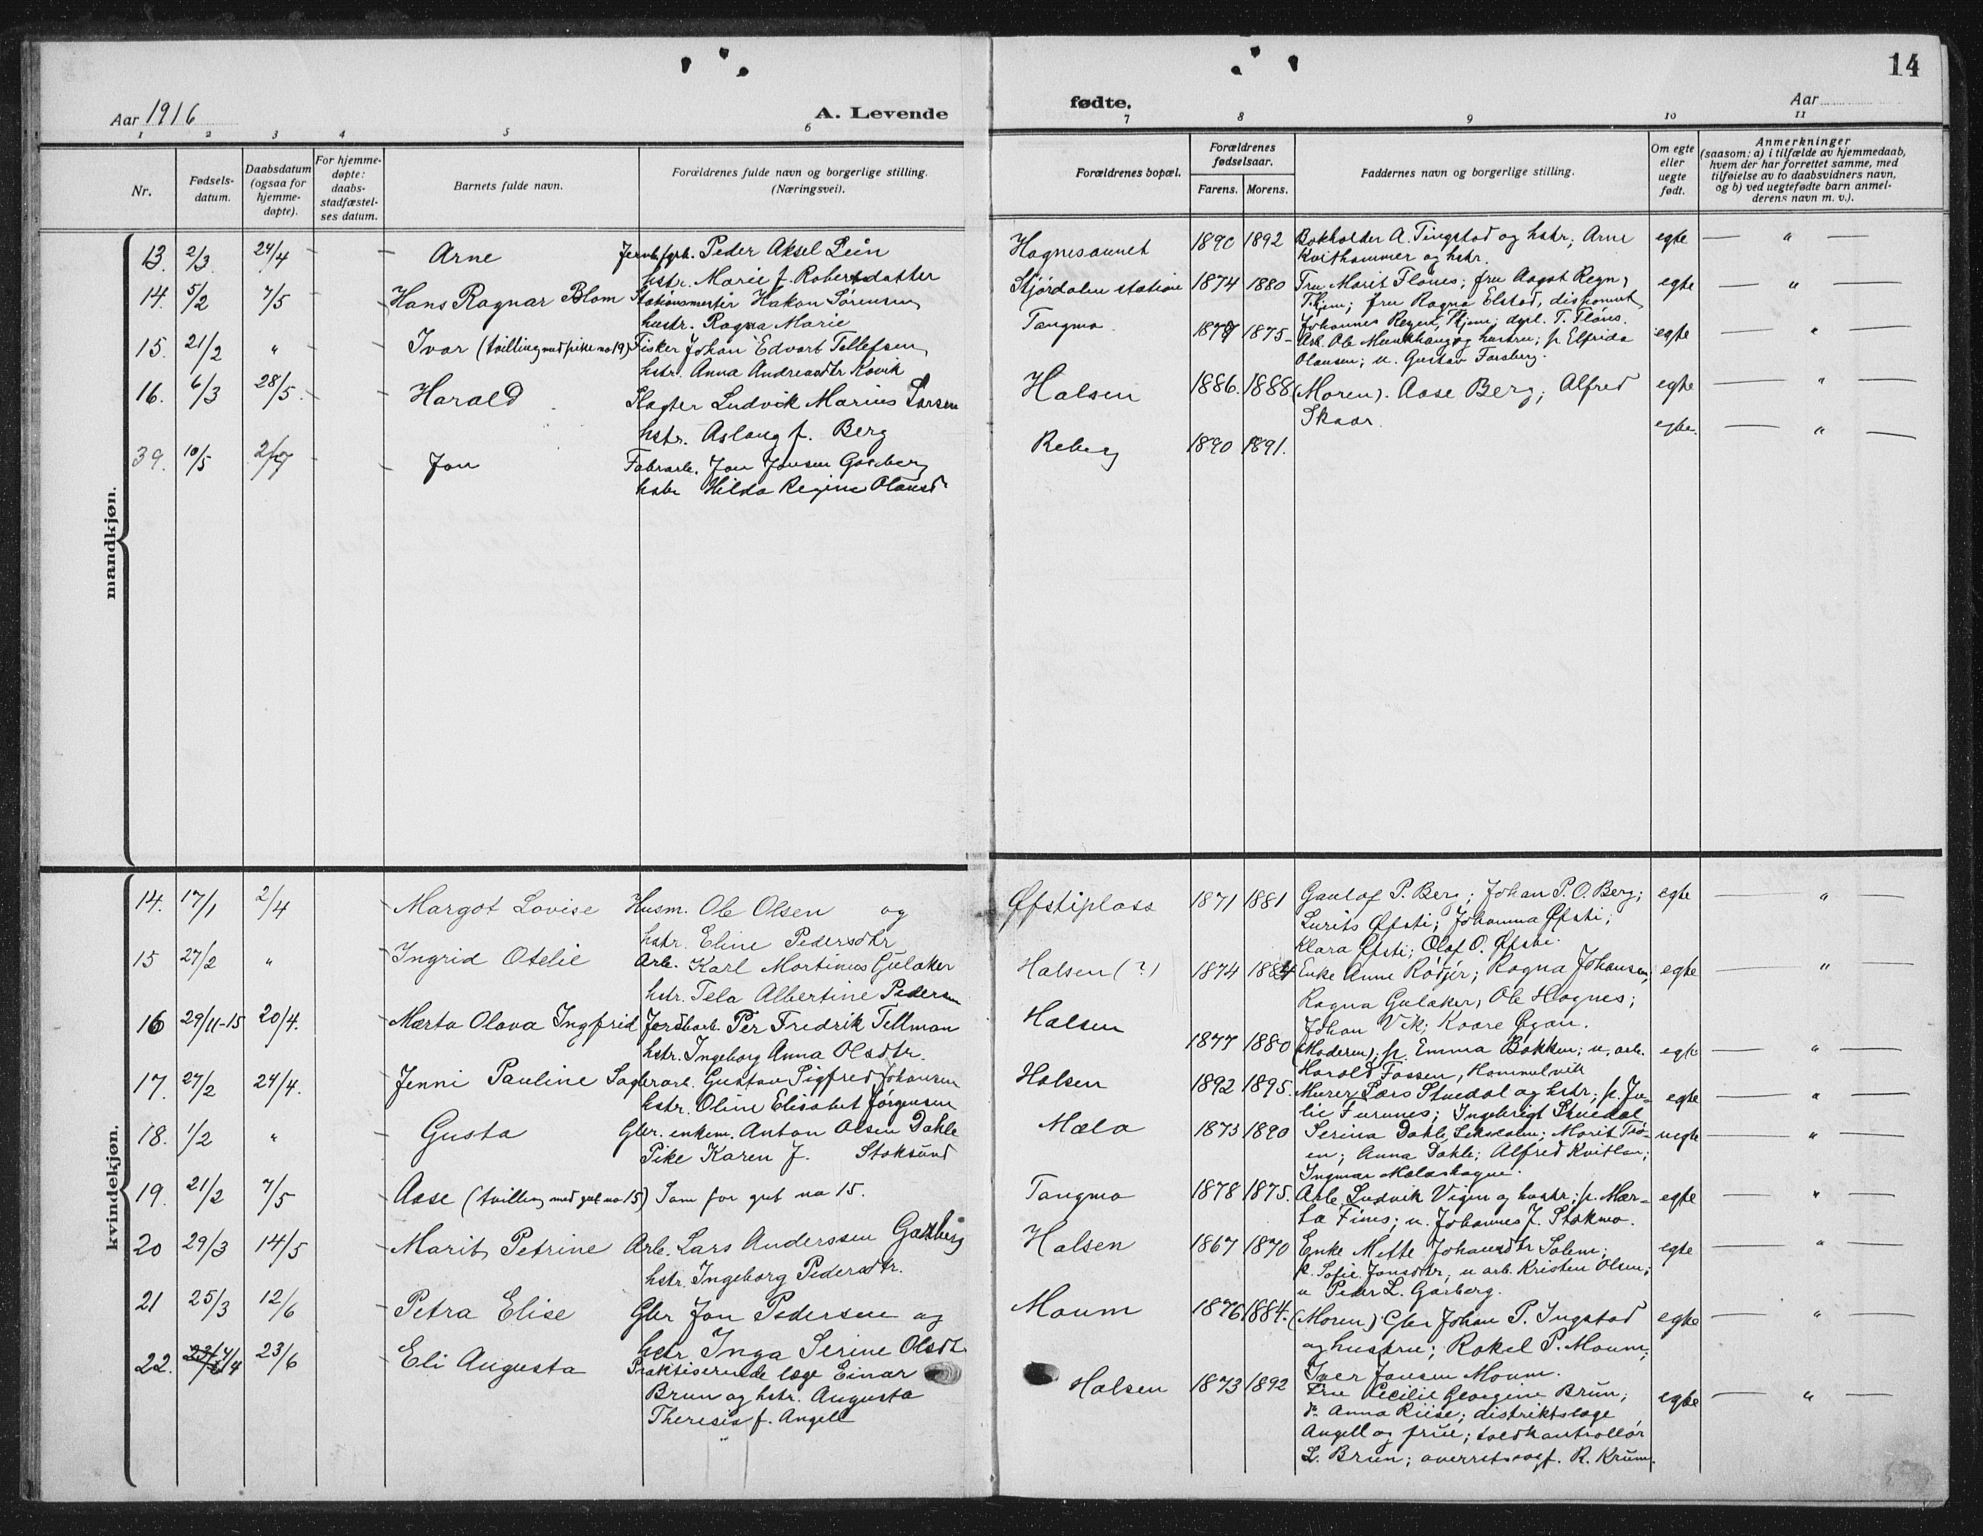 14
Aar 1916
A. Levende
fødte.
Aar
1 2 3 4 5 6 7 8 9 10 11
Nr.
Fødsels-
datum.
Daabsdatum
(ogsaa for
hjemme-
døpte).
For hjemme-
døpte:
daabs-
stadfæstel-
ses datum.
Barnets fulde navn.
Forældrenes fulde navn og borgerlige stilling.
(Næringsvei).
Forældrenes bopæl.
Forældrenes
fødselsaar.
Farens. Morens.
Faddernes navn og borgerlige stilling.
Om egte
eller
uegte
født.
Anmerkninger
(saasom: a) i tilfælde av hjemmedaab,
hvem der har forrettet samme, med
tilføielse av to daabsvidners navn,
og b) ved uegtefødte barn anmel-
derens navn m. v.).
mandkjøn.
13. 2/3 24/4 – – Arne Peder Aksel Lein 1890 1892 Bokholder A. Tingstad og hstr; Arne egte — " —
hstr. Marie f. Robertsdatter Kvithammer og hstr.
14. 5/2 7/5 – – Hans Ragnar Blom Stationsmester Hakon Sørensen Stjørdalen station 1874 1880 Fru Marit Flønes; fru Aagot Regn, egte — " —
hustr. Ragna Marie Thjem; fru Ragna Elstad, disponent
Johannes Regn, Thjem; T. Flønes.
15. 21/2 " – Ivar (tvilling med pike no 19) Fisker Johan Edvart Tellefsen Tangmo 1875 Arb. Ole og hustru; p. Elfrida egte — " —
hstr. Anna Andreasdtr Kovik Olausen; u. Gustav Forsberg.
16. 6/3 28/5 – – Harald Slagter Ludvik Marius Larsen Halsen 1886. 1888 (Moren). Aase Berg; Alfred egte — " —
hstr. Aslaug f. Berg Skaar.
39. 10/5 2/7 – – Jon Fabrarb. Jon Jonsen Reberg 1890 1891. egte. — " —
Hilda Regine Olausd
kvindekjøn.
14. 17/1 2/4 – Margot Lovise Husm. Ole Olsen og Øfstiplass 1871 1881 P. Berg; Johan P. O. Berg; egte — " —
hstr. Eline Pedersdtr Lurits Øfsti; Johanna Øfsti;
Klara Øfsti; Olaf O. Øfsti.
15 27/2 " – Ingrid Otelie Arb. Karl Martinus Gulaker Halsen (?) 1874 1884 Enke Anne Rødjer; Ragna Johansen, egte — " —
hstr. Tela Albertine Pedersen Ragna Gulaker, Ole Hognes;
Johan Vik; Kaare Øgan.
16 29/11-15 20/4. – Mærta Olava Ingfrid Jordbarb. Per Fredrik Tellman Halsen 1877 1880 (Moderen); p. Emma Bakken; u. arb. egte — " —
hstr. Ingeborg Anna Olsdtr. Harald Fossen, Hommelvik
17. 27/2 24/4. – Jenni Pauline Sagbrarb. Gustav Sigfred Johansen Halsen 1892 1895. Murer Lars Stuedal og hstr; p. Ju- egte — " —
hstr. Oline Elisabet Jørgensen lie Furunes; Ingebrigt Stuedal
18. 1/2 " – Gusta Gbr. enkem. Anton Olsen Dahle Mæla 1873 1890 Serina Dahle, Leksdalen; Marit Trø- uegte — " —
Pike Karen J. Stoksund en; Anna Dahle; Alfred Kvitlan;
Ingmar Mælashagne.
19. 21/2 7/5 – Aase (tvilling med gut no 15) Som for gut no 15. Tangmo 1878 1875. Arb. Ludvik Vigen og hustr; p. Mær- egte — " —
ta Fines; u. Johannes J. Stokmo.
20 29/3 14/5 – Marit Petrine Arb. Lars Anderssen Garberg Halsen 1867 1870 Enke Mette Johansdtr Solem; egte — " —
hstr. Ingeborg Pedersdtr. p. Sofie Jonsdtr, u arb. Kristen Olsen;
u Peder L. Garberg.
21 25/3 12/6 – Petra Elise Gbr Jon Pedersen og Moum 1876 1884. (Moren) Gbr Johan P. Ingstad egte — " —
hstr Inga Serine Olsdt og hustru; Rakel P. Moum;
Iver Jonsen Moum.
22. 4/4 23/6 – Eli Augusta Praktiserende læge Einar Halsen 1873 1892 Frue Cecilie Georgine Brun; egte — " —
Brun og hstr. Augusta Anna Riise; distriktslæge
Theresia f. Angell Angell og frue; toldkontrollør
L. Brun; overretssagf. R. Krum.